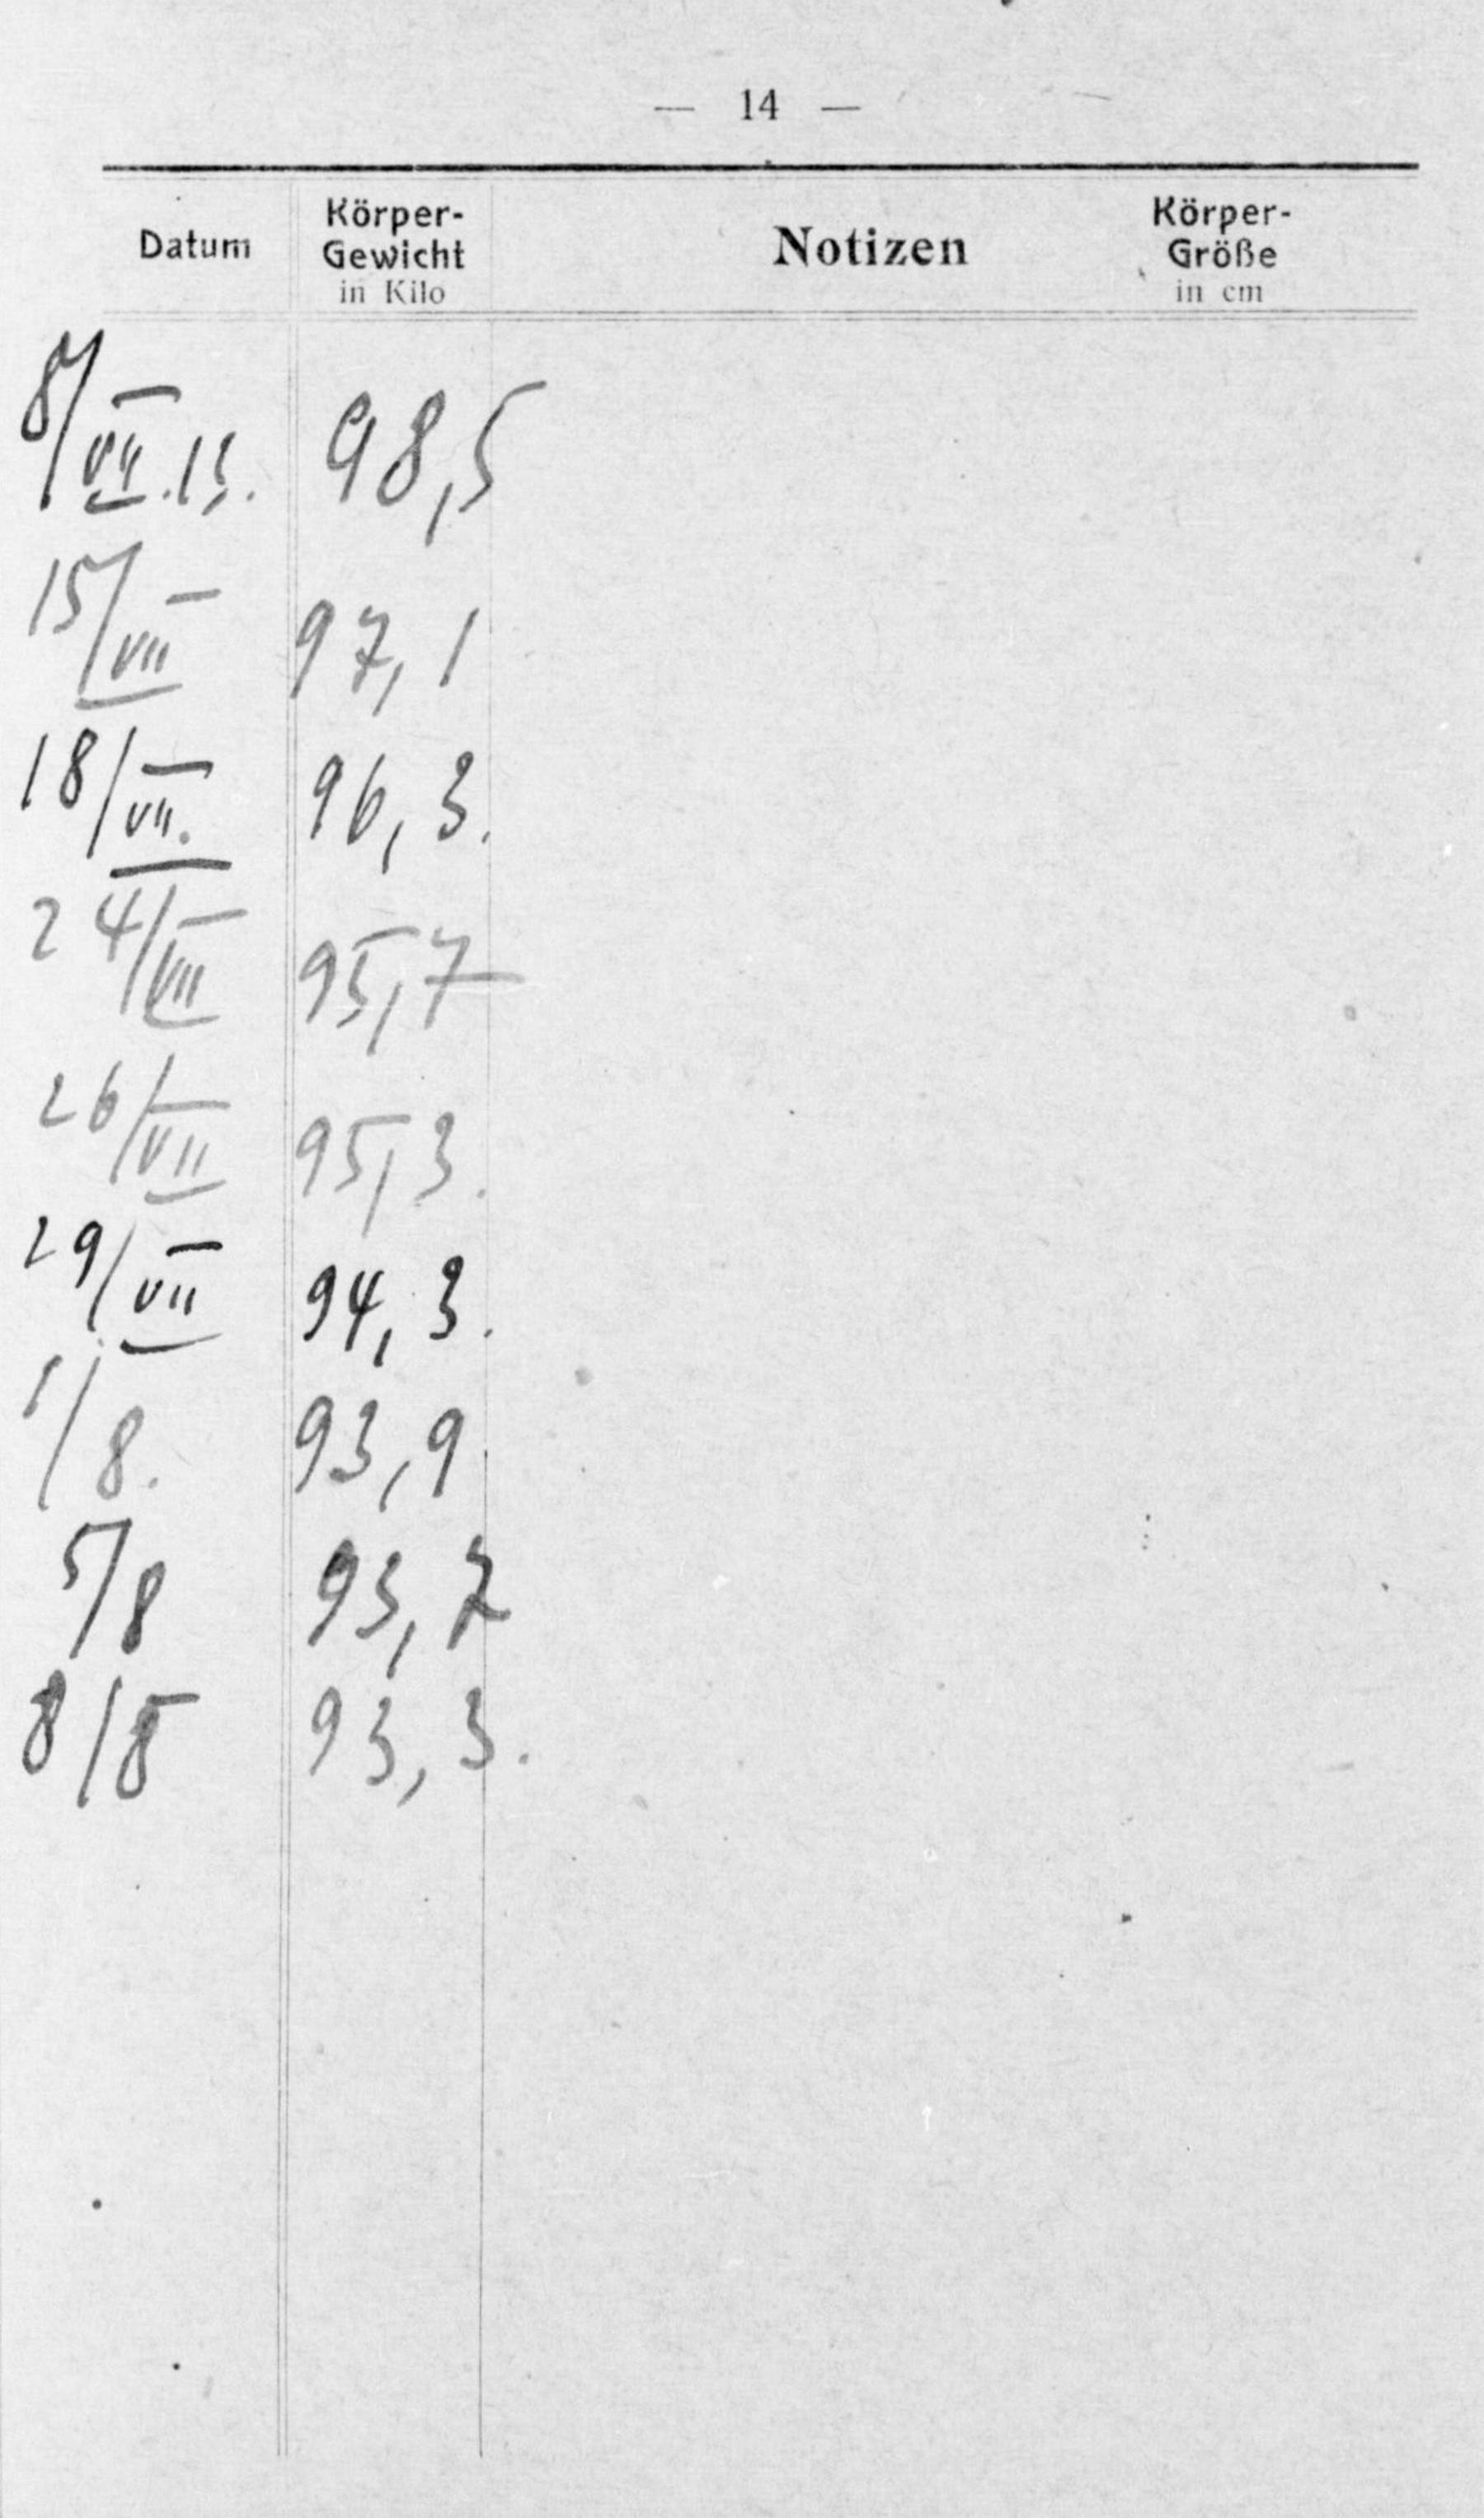 — 14 —
Datum Körper-Gewicht in Kilo Notizen Körper-Größe in cm
8/VII.15. 98,5
15/VII 97,1
18/VII. 96,3.
24/VII 95,7
26/VII 95,3.
29/VII 94,3.
1/8. 93,9
5/8 93,7
8/8 93,3.